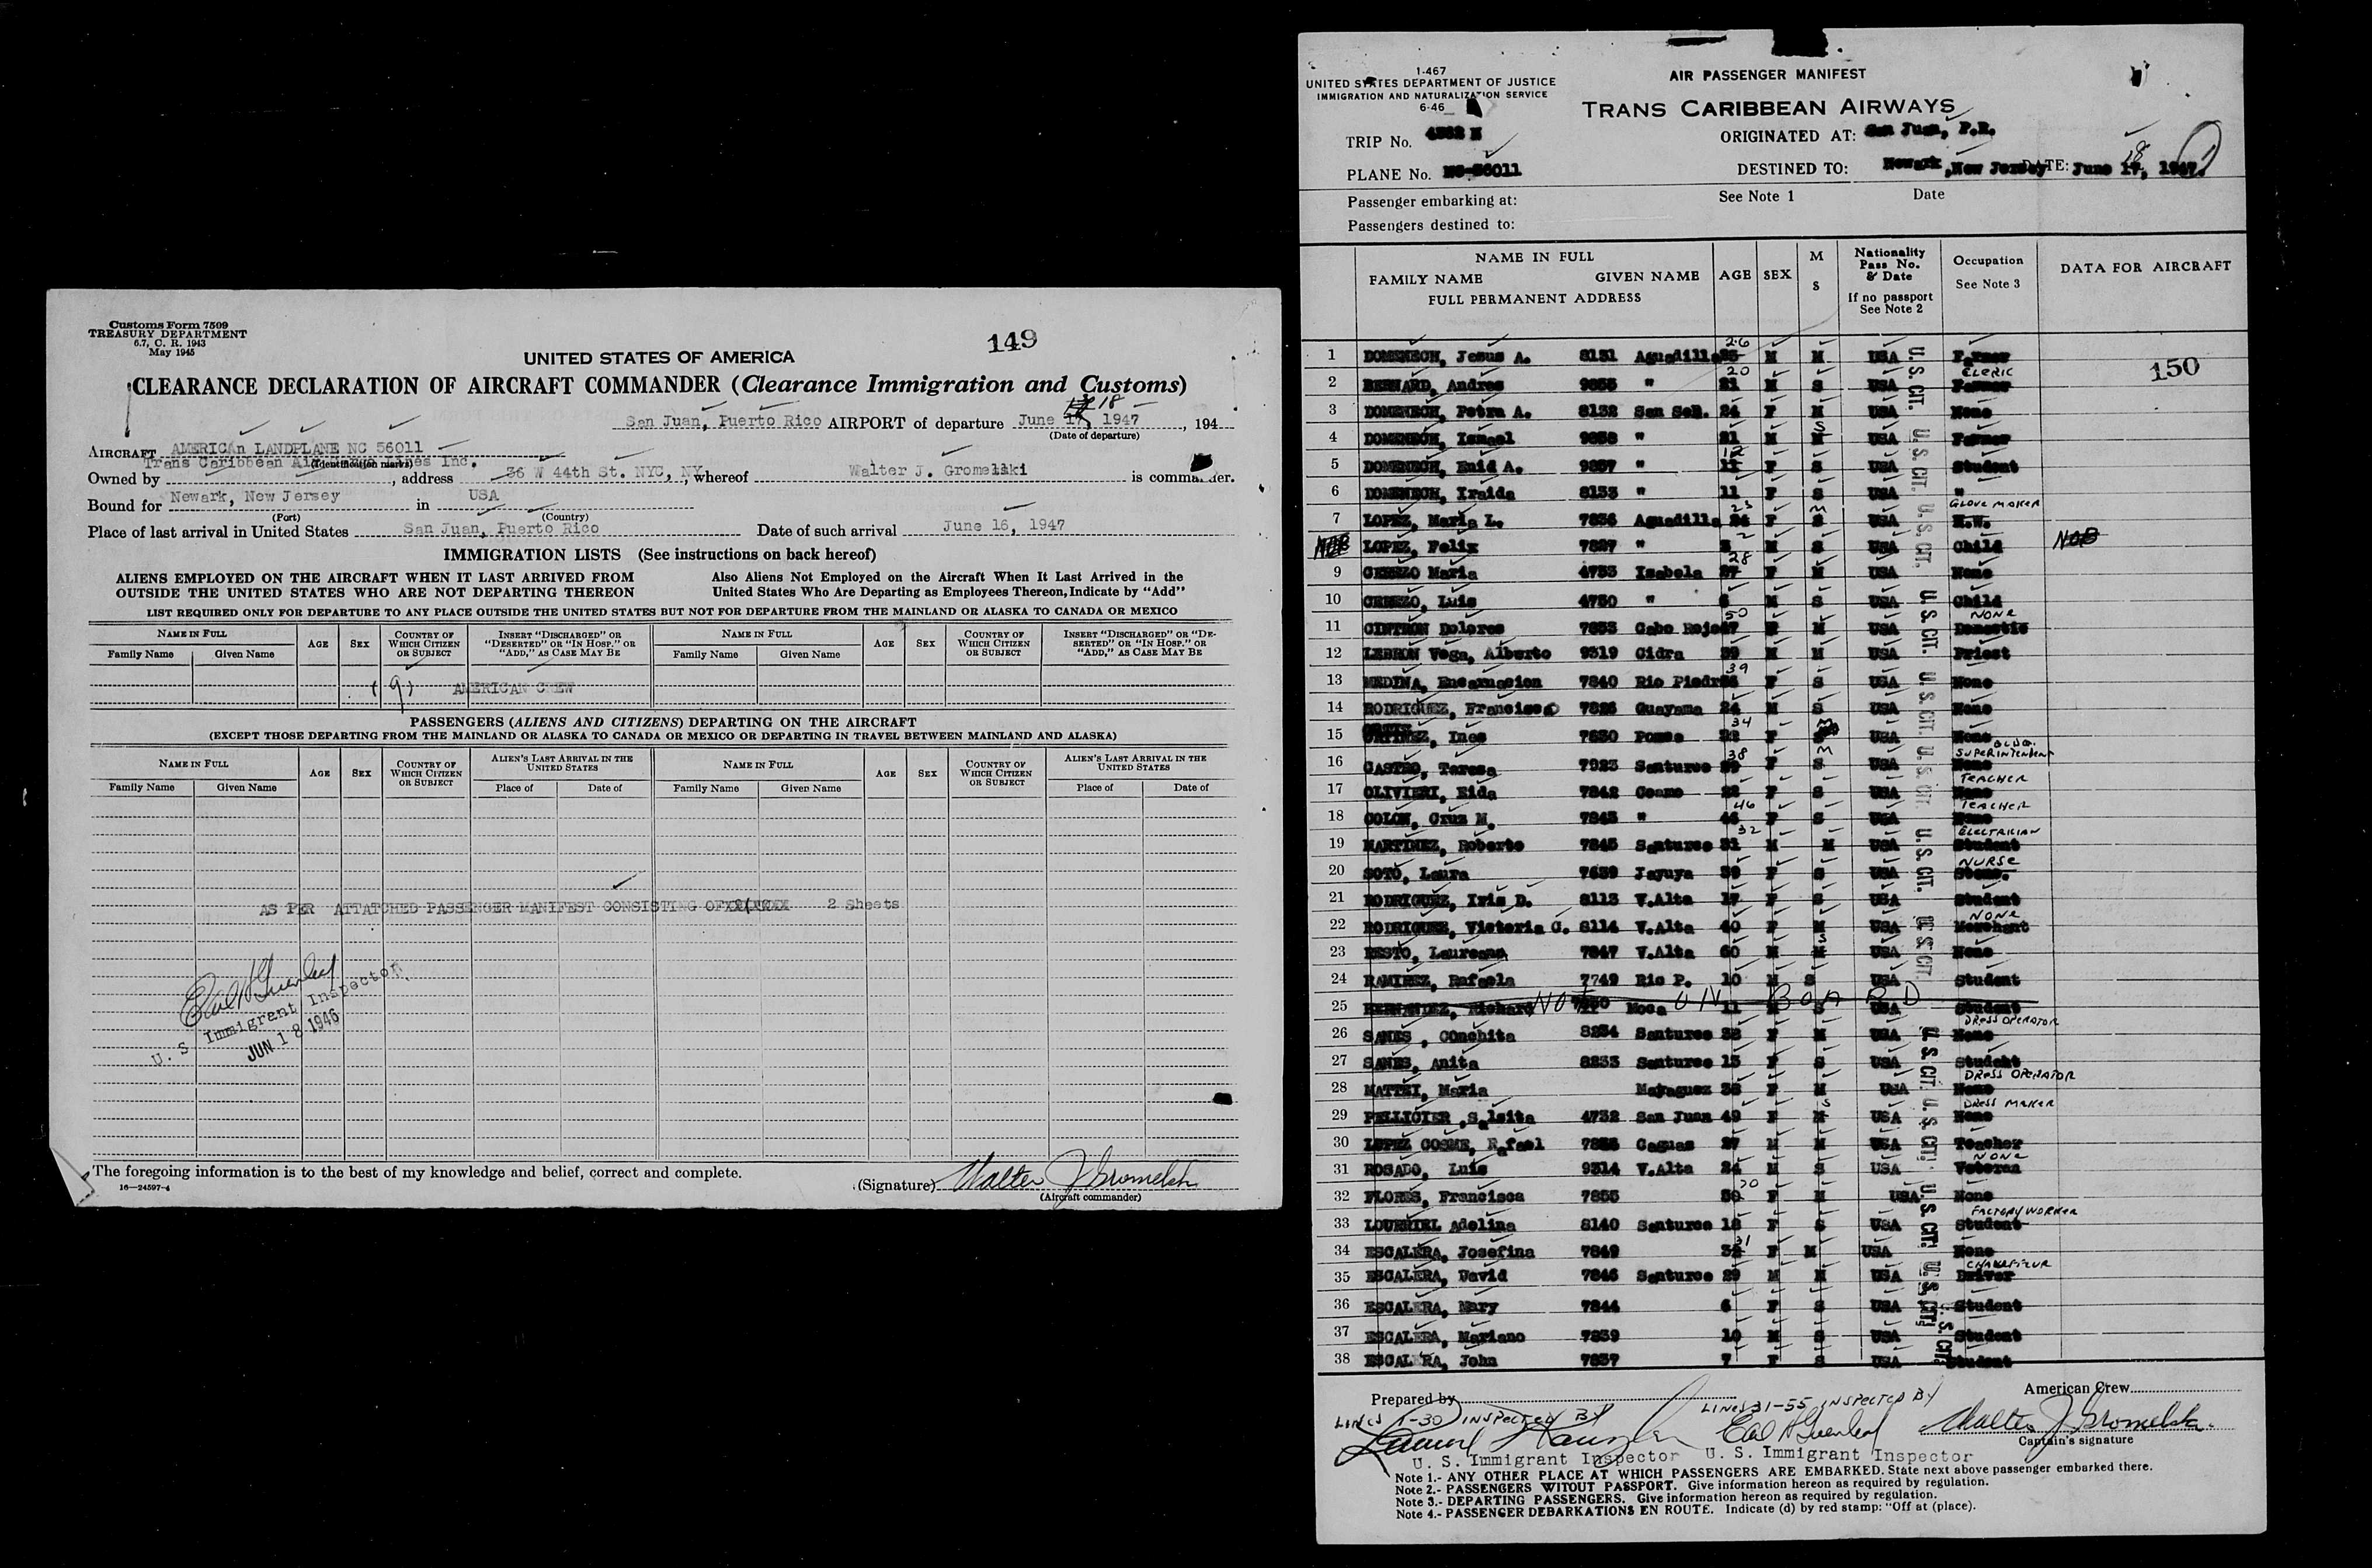 Customs Form 7509
TREASURY DEPARTMENT
6.7, C. R. 1943
May 1945
149
UNITED STATES OF AMERICA
CLEARANCE DECLARATION OF AIRCRAFT COMMANDER (Clearance Immigration and Customs)
San Juan, Puerto Rico AIRPORT of departure June 17, 18 1947, 194
(Date of departure)
AIRCRAFT AMERICAn LANDPLANE NC 56011
(Identification marks)
Owned by Trans Caribbean Air Lines Inc., address 36 W 44th St. NYC, NY, whereof Walter J. Gromelski is commander.
Bound for Newark, New Jersey in USA
(Port) (Country)
Place of last arrival in United States San Juan, Puerto Rico Date of such arrival June 16, 1947
IMMIGRATION LISTS (See instructions on back hereof)
ALIENS EMPLOYED ON THE AIRCRAFT WHEN IT LAST ARRIVED FROM OUTSIDE THE UNITED STATES WHO ARE NOT DEPARTING THEREON
Also Aliens Not Employed on the Aircraft When It Last Arrived in the United States Who Are Departing as Employees Thereon, Indicate by "Add"
LIST REQUIRED ONLY FOR DEPARTURE TO ANY PLACE OUTSIDE THE UNITED STATES BUT NOT FOR DEPARTURE FROM THE MAINLAND OR ALASKA TO CANADA OR MEXICO
NAME IN FULL AGE SEX COUNTRY OF WHICH CITIZEN OR SUBJECT INSERT "DISCHARGED" OR "DESERTED" OR "IN HOSP." OR "ADD," AS CASE MAY BE NAME IN FULL AGE SEX COUNTRY OF WHICH CITIZEN OR SUBJECT INSERT "DISCHARGED" OR "DE-SERTED" OR "IN HOSP." OR "ADD," AS CASE MAY BE
Family Name Given Name Family Name Given Name
(9) AMERICAN CREW
PASSENGERS (ALIENS AND CITIZENS) DEPARTING ON THE AIRCRAFT
(EXCEPT THOSE DEPARTING FROM THE MAINLAND OR ALASKA TO CANADA OR MEXICO OR DEPARTING IN TRAVEL BETWEEN MAINLAND AND ALASKA)
NAME IN FULL AGE SEX COUNTRY OF WHICH CITIZEN OR SUBJECT ALIEN'S LAST ARRIVAL IN THE UNITED STATES NAME IN FULL AGE SEX COUNTRY OF WHICH CITIZEN OR SUBJECT ALIEN'S LAST ARRIVAL IN THE UNITED STATES
Family Name Given Name Place of Date of Family Name Given Name Place of Date of
AS PER ATTATCHED PASSENGER MANIFEST CONSISTING OF 2 Sheets
U. S Immigrant Inspector
JUN 18 1946
The foregoing information is to the best of my knowledge and belief, correct and complete.
16—24597-4
(Signature) Walter J Gromelski
(Aircraft commander)
1-467
UNITED STATES DEPARTMENT OF JUSTICE
IMMIGRATION AND NATURALIZATION SERVICE
6-46
AIR PASSENGER MANIFEST
TRANS CARIBBEAN AIRWAYS
TRIP No. 4362 N ORIGINATED AT: San Juan, P.R.
PLANE No. NC-56011 DESTINED TO: Newark, New Jersey DATE: June 17, 18 1947.
Passenger embarking at: See Note 1 Date
Passengers destined to:
NAME IN FULL
FAMILY NAME GIVEN NAME AGE SEX M S Nationality Pass No. & Date If no passport See Note 2 Occupation See Note 3 DATA FOR AIRCRAFT
FULL PERMANENT ADDRESS
150
1 DOMENECH, Jesus A. 8131 Aguadilla 26 M M USA Farmer
2 BERNARD, Andres " 20 21 M S USA CLERIC Farmer
3 DOMENECH, Petra A. 8132 San Seb. 24 F M USA None
4 DOMENECH, Ismael " 21 M S USA Farmer
5 DOMENECH, Enid A. 9857 " 12 F S USA Student
6 DOMENECH, Iraida 8133 " 11 F S USA "
7 LOPEZ, Maria L. 7836 Aguadilla 25 F M USA GLOVE MAKER H.W.
NOB LOPEZ, Felix 7827 " 2 M S USA Child NOB
9 CEREZO Maria 4733 Isabela 28 27 F M USA None
10 CEREZO, Luis 4730 " M S USA Child
11 CINTRON Dolores 7833 Cabo Rojo 50 M USA NONE Domestic
12 LEBRON Vega, Alberto 9319 Cidra 39 M M USA Priest
13 MEDINA, Encarnacion 7840 Rio Piedras 39 F S USA None
14 RODRIGUEZ, Francisco 7826 Guayama 24 M S USA None
15 Ines 7830 Ponce 34 F USA None
16 CASTRO, Teresa 7923 Santurce 38 F M USA BLDG. SUPERINTENDENT None
17 OLIVIERI, Eida 7842 Coamo 22 F S USA TEACHER None
18 COLON, Cruz M. 7843 " 46 F S USA TEACHER None
19 MARTINEZ, Roberto 7845 Santurce 32 31 M M USA ELECTRICIAN Student
20 SOTO, Laura 7639 Jayuya 39 F S USA NURSE Steno.
21 RODRIGUEZ, Iris D. 8113 V.Alta 17 F S USA Student
22 RODRIGUEZ, Victoria C. 8114 V.Alta 40 F M USA NONE Merchant
23 RESTO, Laureano 7847 V.Alta 60 M S USA None
24 RAMIREZ, Rafaela 7749 Rio P. 10 M S USA Student
25 HERNANDEZ, Richard Moca 11 M S USA Student NOT ON BOARD
26 SANES, COnchita 8234 Santurce 38 F M USA DRESS OPERATOR None
27 SANES, Anita 8233 Santurce 13 F S USA Student
28 MATTEI, Maria Mayaguez 38 F M USA DRESS OPERATOR None
29 PELLICIER, Salsita 4732 San Juan 49 F S USA DRESS MAKER None
30 LOPEZ COSME, Rafael 7835 Caguas 27 M M USA Teacher
31 ROSADO, Luis 9314 V.Alta 24 M S USA NONE Veteran
32 FLORES, Francisca 7855 30 F M USA None
33 LOUBRIEL Adelina 8140 Santurce 18 F S USA FACTORY WORKER Student
34 ESCALERA, Josefina 7849 31 F M USA None
35 ESCALERA, David 7846 Santurce 29 M M USA CHAUFFEUR Driver
36 ESCALERA, Mary 7844 6 F S USA Student
37 ESCALERA, Mariano 7839 10 M S USA Student
38 ESCALERA, John 7837 7 F S USA Student
U. S. CIT.
Prepared by American Crew
LINES 1-30 INSPECTED BY LINES 31-55 INSPECTED BY
Walter J Gromelski
Captain's signature
U. S. Immigrant Inspector U. S. Immigrant Inspector
Note 1.- ANY OTHER PLACE AT WHICH PASSENGERS ARE EMBARKED. State next above passenger embarked there.
Note 2.- PASSENGERS WITOUT PASSPORT. Give information hereon as required by regulation.
Note 3.- DEPARTING PASSENGERS. Give information hereon as required by regulation.
Note 4.- PASSENGER DEBARKATIONS EN ROUTE. Indicate (d) by red stamp: "Off at (place).